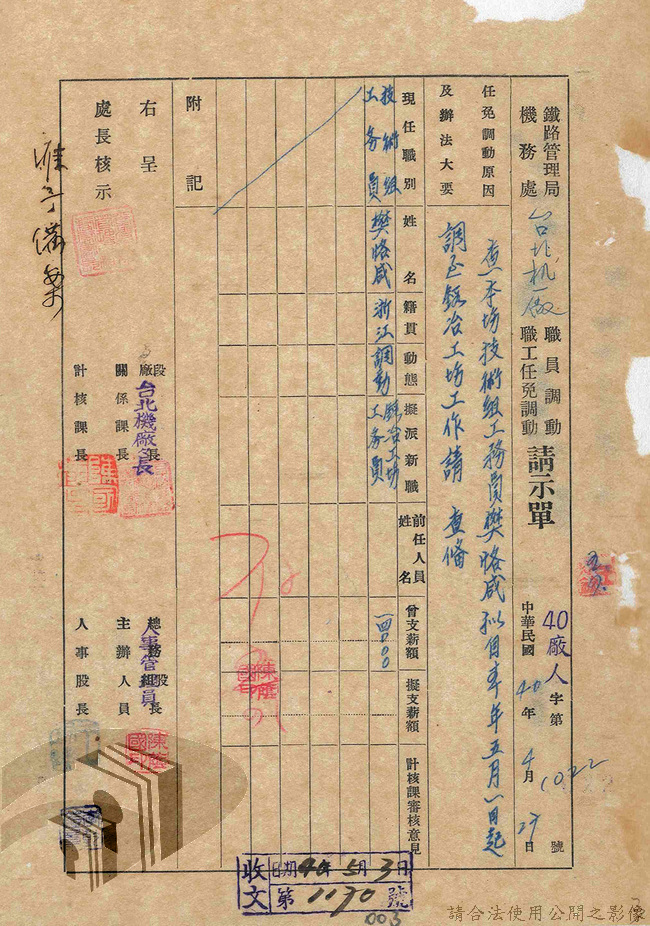 鐵路管理局
機務處
台北机廠
職員調動
職工任免調動
請示單
40廠人字第1022號
中華民國40年4月27日
任免調動原因
及辦法大要
查本坊技術組工務員樊恪咸擬自本年五月一日起
調至鍛冶工坊工作請 查備
現任職別
姓名
籍貫
動態
擬派新職
前任人員
姓名
曾支薪額
擬支薪額
計核課審核意見
技術組
工务員
樊恪咸
浙江
調動
鍛冶工坊
工务員
附記
右呈
處長核示
准予備案
段
廠長
台北機廠長
關係課長
計核課長
總務股長
人事管理員
主辦人員
人事股長
收文
日期40年5月3日
第1170號
003
請合法使用公開之影像